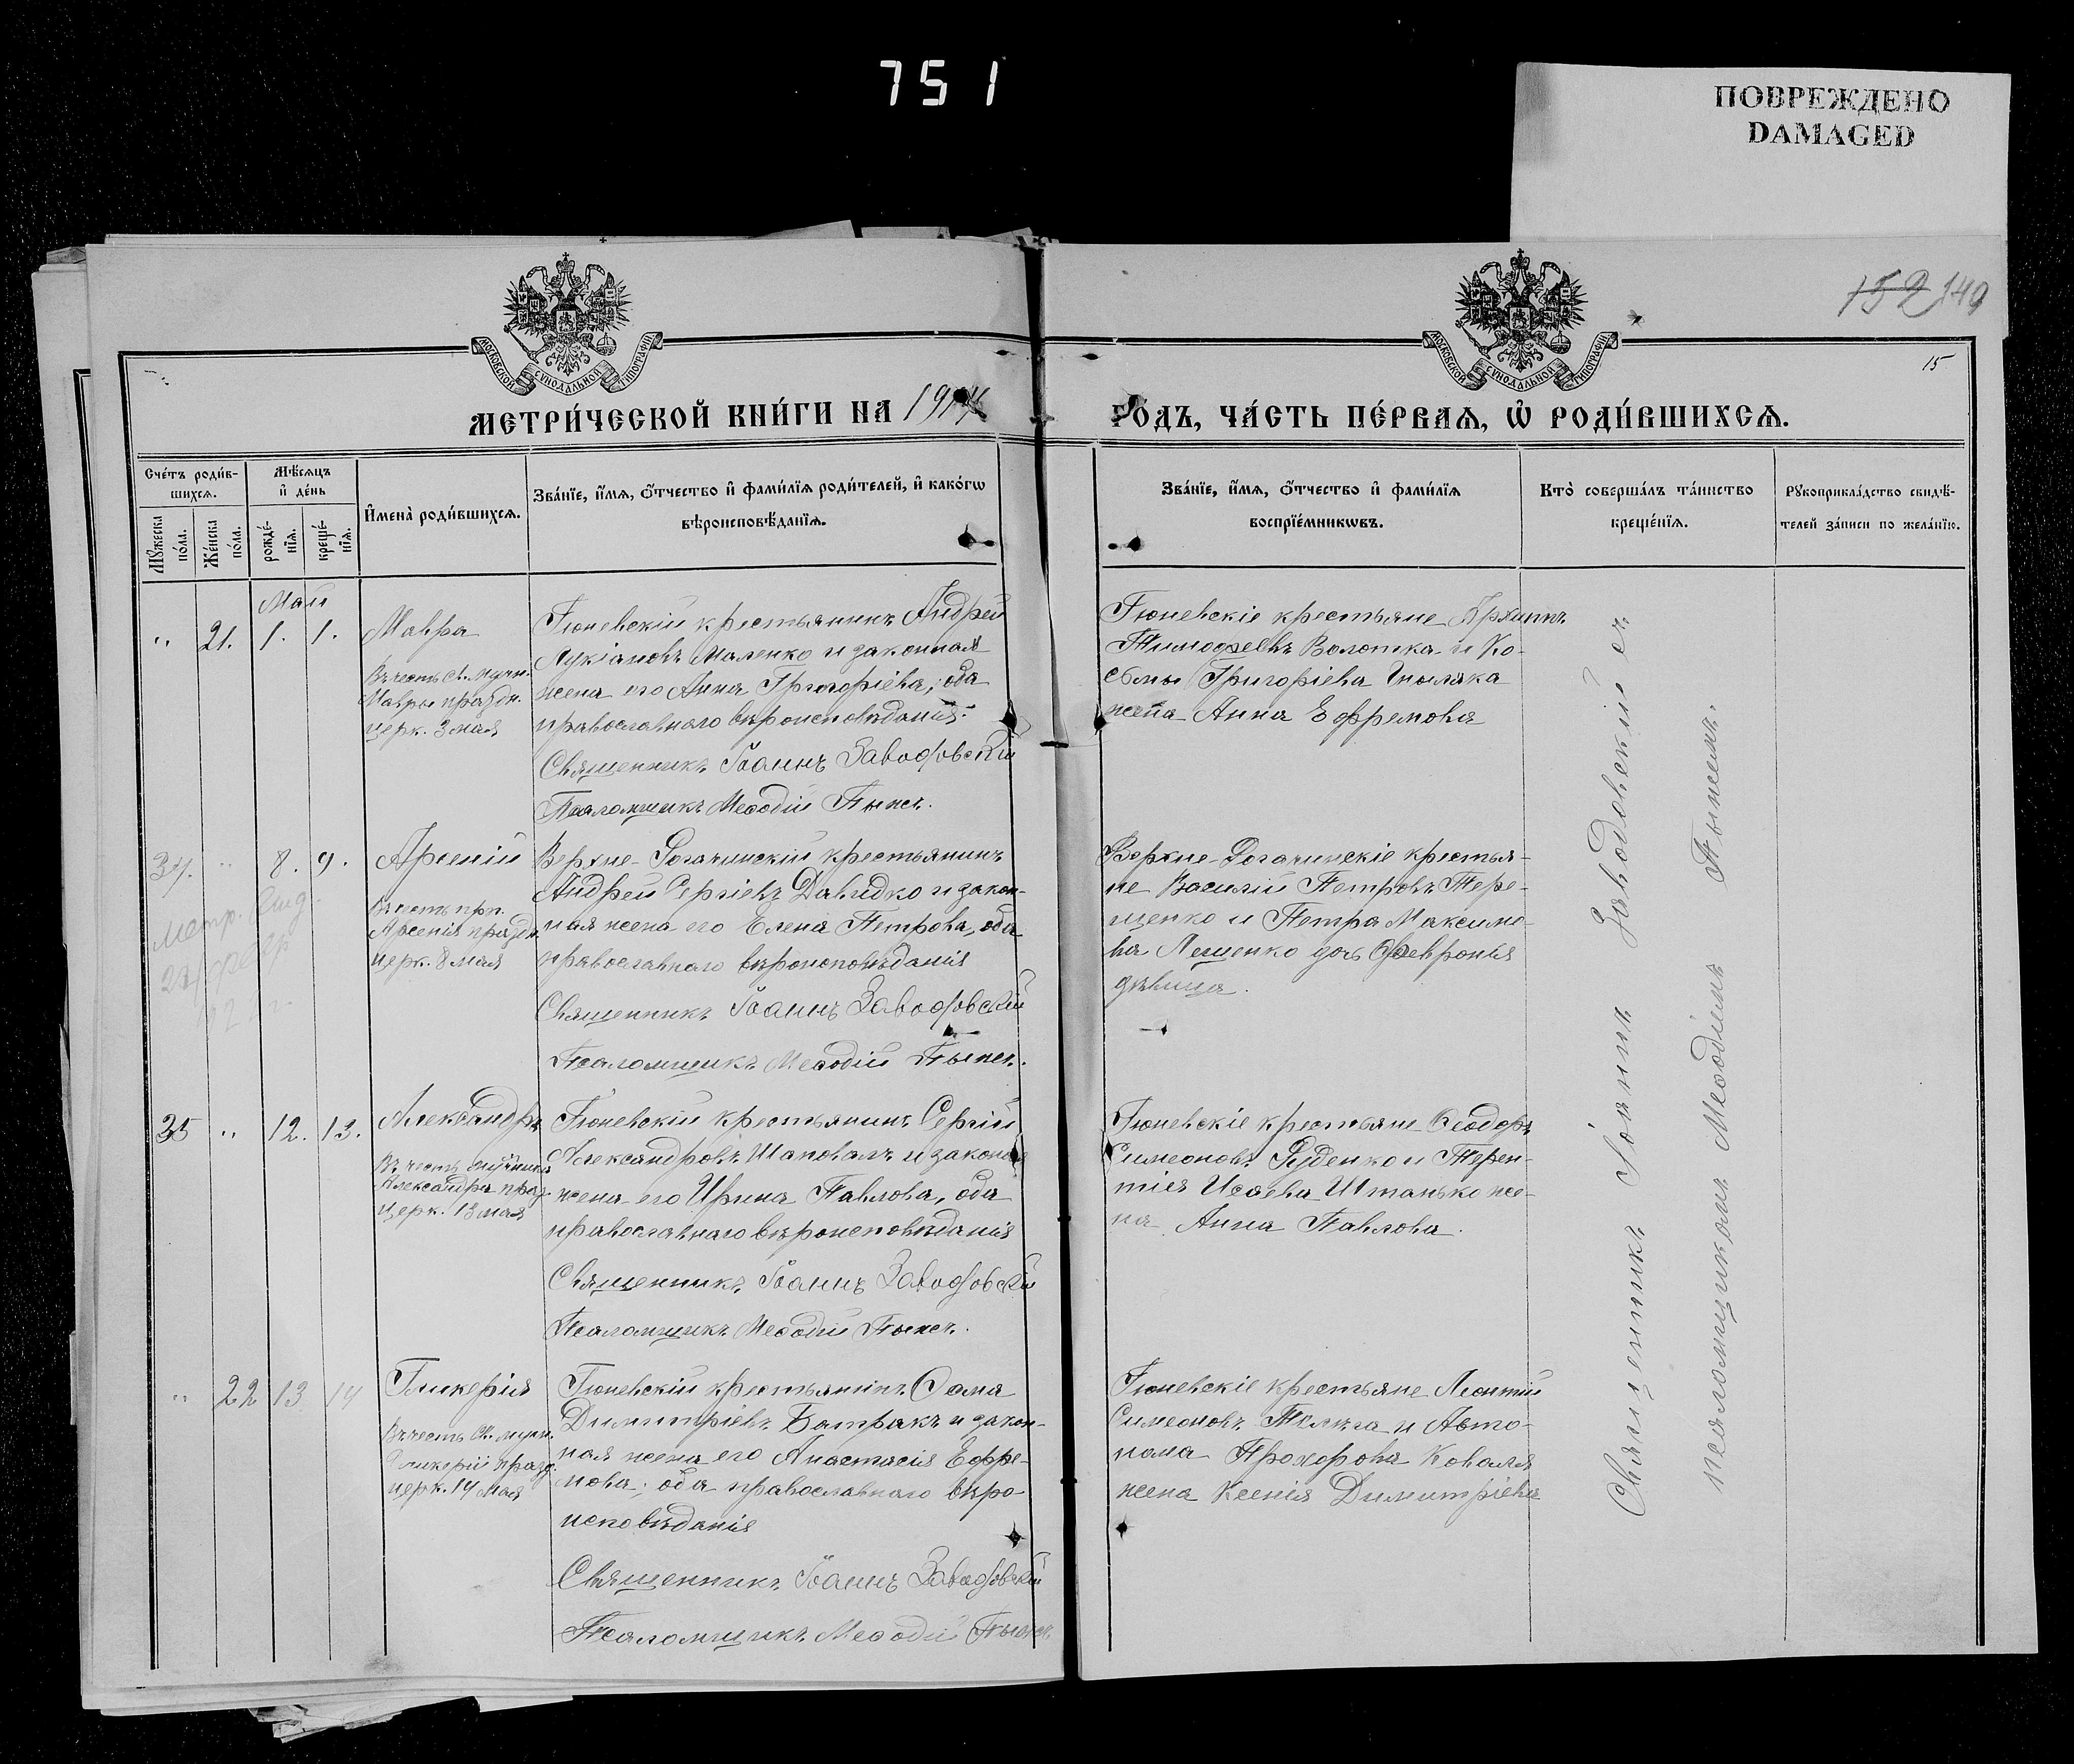 751
ПОВРЕЖДЕНО
DAMAGED
152 149
15
МОСКОВСКОЙ СѴНОДАЛЬНОЙ ТИПОГРАФІИ
МОСКОВСКОЙ СѴНОДАЛЬНОЙ ТИПОГРАФІИ
МЕТРИ́ЧЕСКОЙ КНИ́ГИ НА 1914 ГО́ДЪ, ЧА́СТЬ ПЕ́РВАѦ, Ѡ҆ РОДИ́ВШИХСѦ.
Сче́тъ роди́в-
шихсѧ.
Мꙋ́жеска
по́ла.
Же́нска
по́ла.
Мѣ́сѧцъ
и҆ де́нь
рожде́-
нїѧ.
креще́-
нїѧ.
И҆мена̀ роди́вшихсѧ.
Зва́нїе, и҆́мѧ, ѻ҆́тчество и҆ фамѝлїѧ роди́телей, и҆ како́гѡ
вѣроисповѣ́данїѧ.
Зва́нїе, и҆́мѧ, ѻ҆́тчество и҆ фами́лїѧ
воспрїе́мникѡвъ.
Кто̀ соверша́лъ та́инство
креще́нїѧ.
Рꙋкоприкла́дство свидѣ́-
телей за́писи по жела́нїю.
Май
" 21. 1. 1. Мавра
Въ честь св. мучн.
Мавры праздн.
церк. 3 мая
Гюневскій крестьянинъ Андрей
Лукіановъ Маленко и законная
жена его Анна Григоріева; оба
православнаго вѣроисповѣданія.
Священникъ Іоаннъ Заводовскій
Псаломщикъ Меѳодій
Гюневскіе крестьяне Архипъ
Тимофеевъ Волошка и Ко-
сьмы Григоріева
жена Анна Ефремова
34. " 8. 9. Арсеній
метр. выд.
Въ честь прп.
Арсенія праздн.
церк. 8 мая
Верхне-Рогачинскій крестьянинъ
Андрей Сергіевъ Давидко и закон-
ная жена его Елена Петрова, оба
православнаго вѣроисповѣданія
Священникъ Іоаннъ Заводовскій
Псаломщикъ Меѳодій
Верхне-Рогачинскіе крестья-
не Василій Петровъ Тере-
щенко и Петра Максимо-
ва Лещенко дочь Февронія
дѣвица.
35 " 12. 13. Александръ
Въ честь мученика
Александра праз.
церк. 13 мая
Гюневскій крестьянинъ Сергій
Александровъ Шаповалъ и законная
жена его Ирина Павлова, оба
православнаго вѣроисповѣданія
Священникъ Іоаннъ Заводовскій
Псаломщикъ Меѳодій
Гюневскіе крестьяне Ѳеодоръ
Симеоновъ Руденко и Терен-
тія Исаева Штанько же-
на Анна Павлова.
" 22 13 14 Гликерія
Въ честь св. мучн.
Гликеріи празд.
церк. 14 Мая
Гюневскій крестьянинъ Сама
Димитріевъ Батракъ и закон-
ная жена его Анастасія Ефре-
мова; оба православнаго вѣро-
исповѣданія
Священникъ Іоаннъ Заводовскій
Псаломщикъ Меѳодій
Гюневскіе крестьяне Леонтій
Симеоновъ и Авто-
нома Прохорова Коваля
жена Ксенія Димитріева
Священникъ Іоаннъ Заводовскій съ
псаломщикомъ Меѳодіемъ